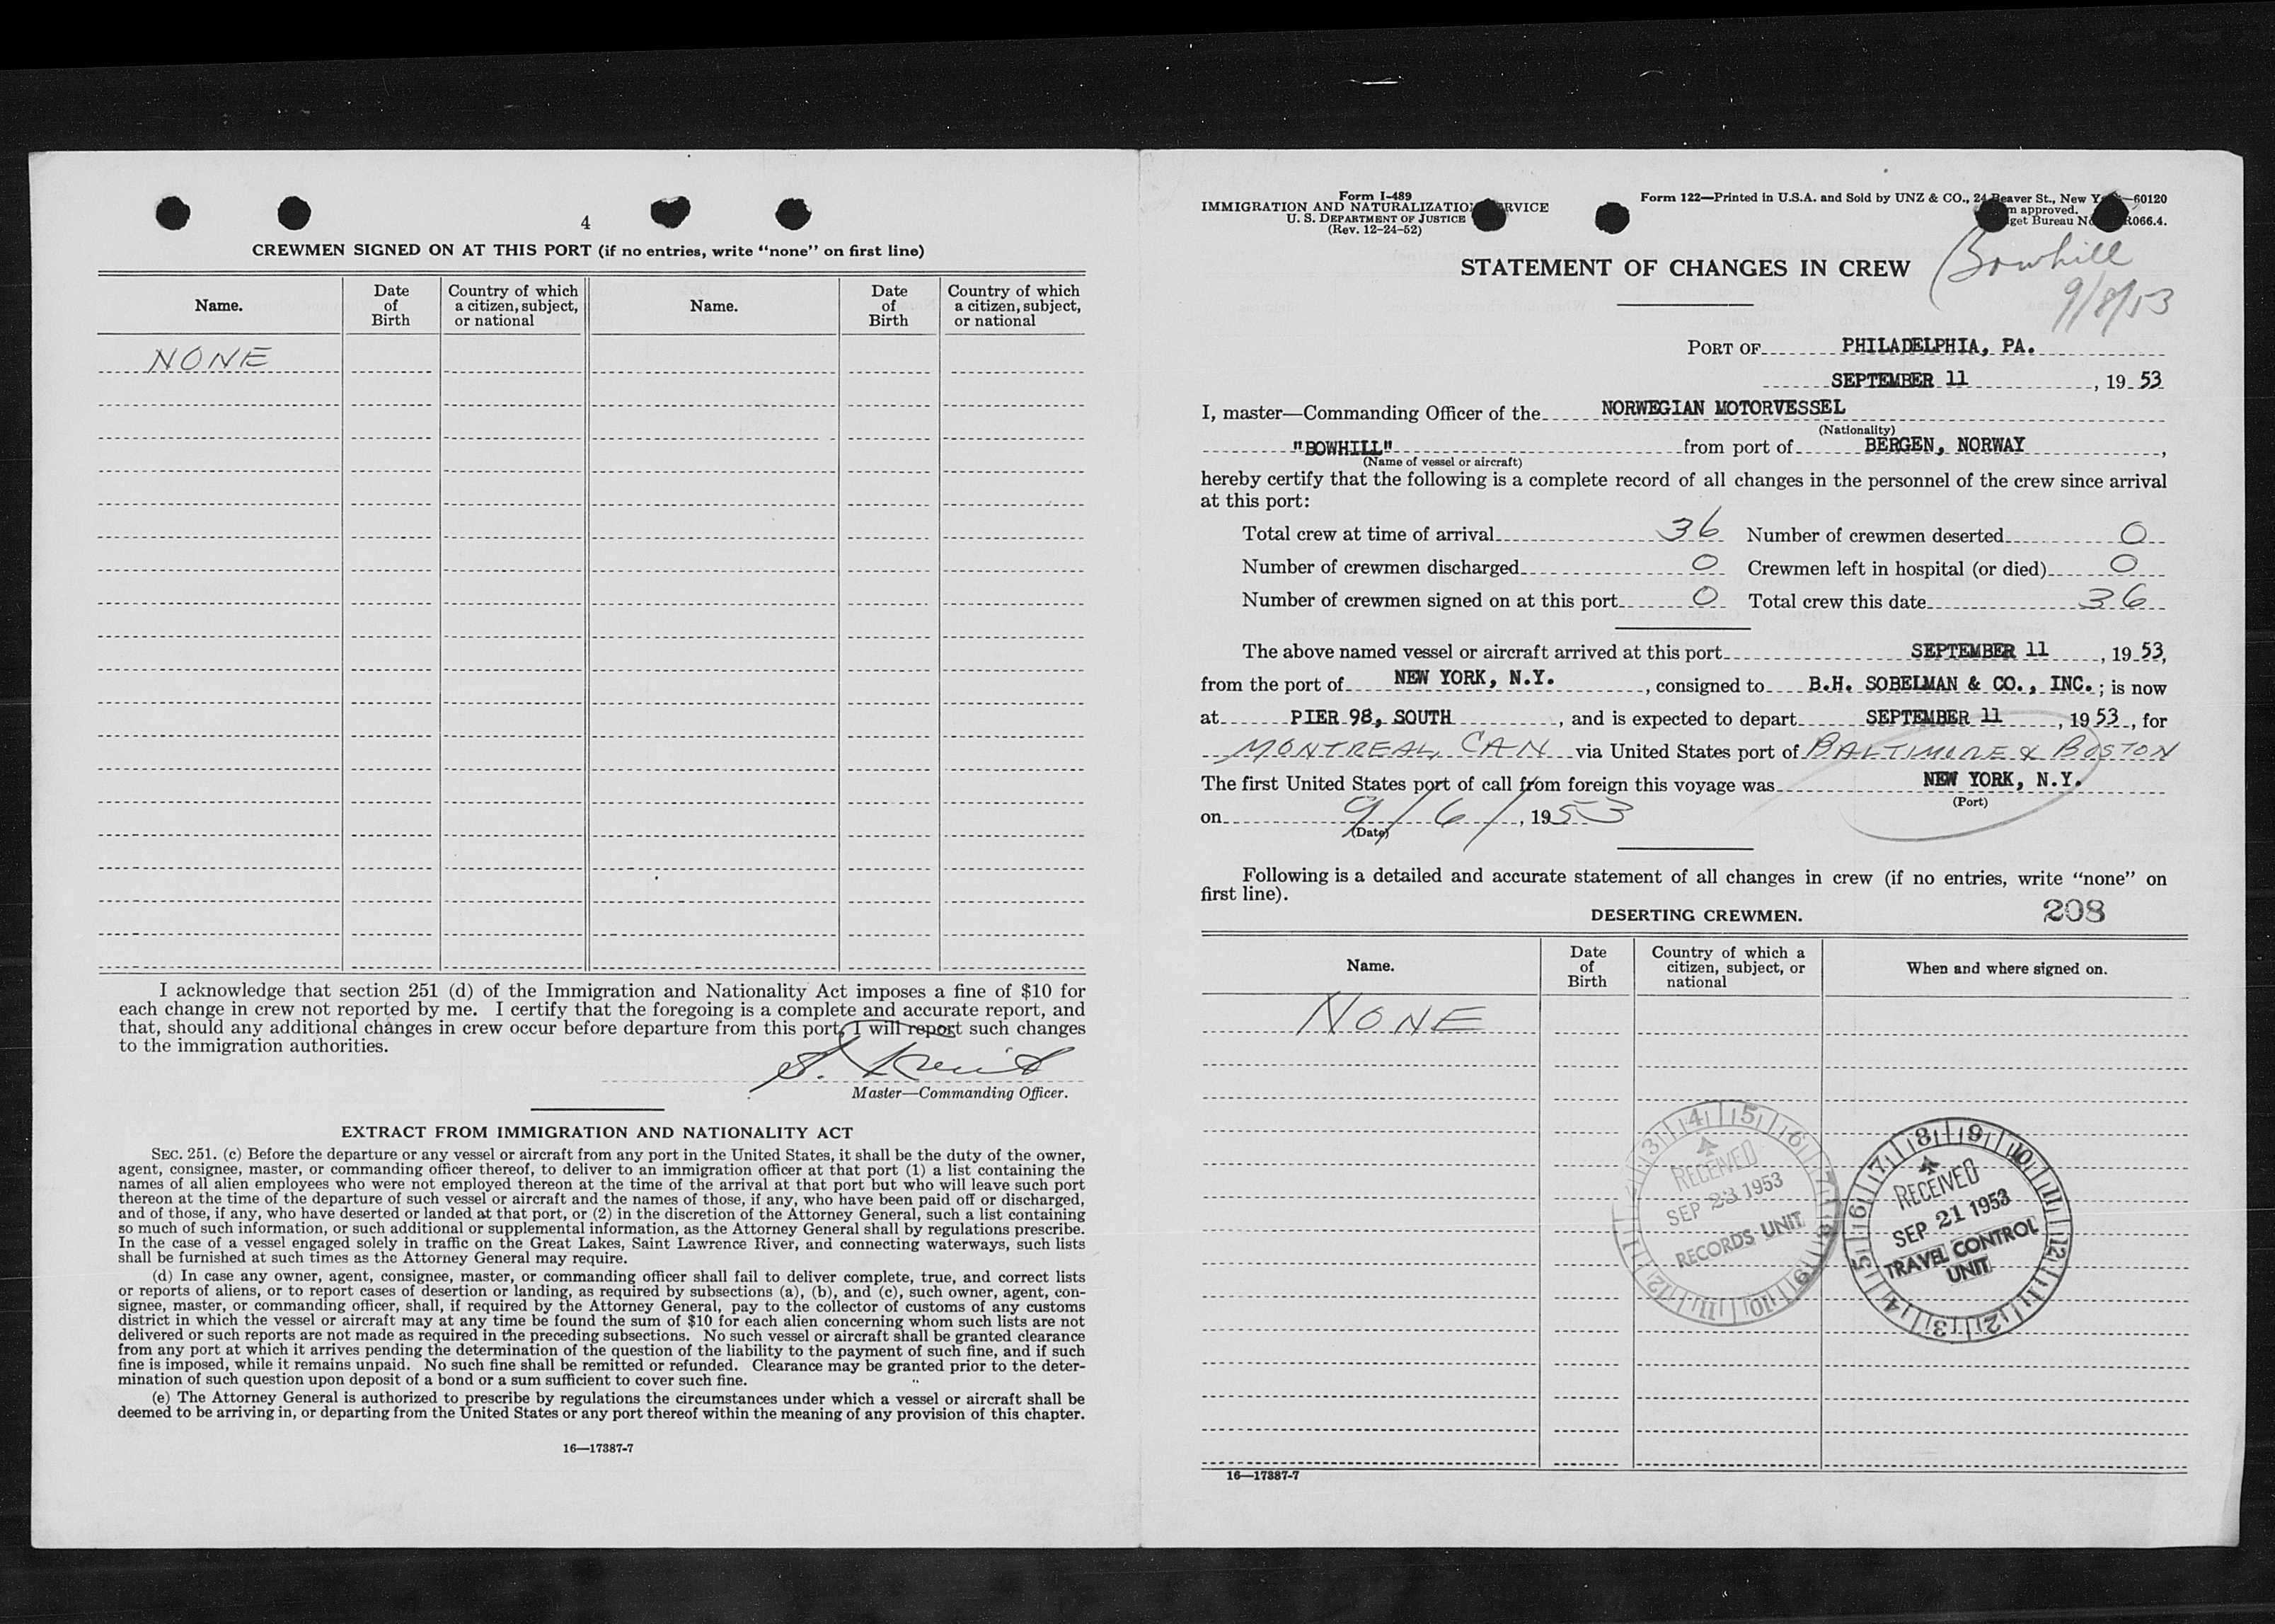 4
CREWMEN SIGNED ON AT THIS PORT (if no entries, write “none” on first line)
Name. Date of Birth Country of which a citizen, subject, or national Name. Date of Birth Country of which a citizen, subject, or national
NONE
I acknowledge that section 251 (d) of the Immigration and Nationality Act imposes a fine of $10 for
each change in crew not reported by me. I certify that the foregoing is a complete and accurate report, and
that, should any additional changes in crew occur before departure from this port, I will report such changes
to the immigration authorities.
S.
Master—Commanding Officer.
EXTRACT FROM IMMIGRATION AND NATIONALITY ACT
SEC. 251. (c) Before the departure or any vessel or aircraft from any port in the United States, it shall be the duty of the owner,
agent, consignee, master, or commanding officer thereof, to deliver to an immigration officer at that port (1) a list containing the
names of all alien employees who were not employed thereon at the time of the arrival at that port but who will leave such port
thereon at the time of the departure of such vessel or aircraft and the names of those, if any, who have been paid off or discharged,
and of those, if any, who have deserted or landed at that port, or (2) in the discretion of the Attorney General, such a list containing
so much of such information, or such additional or supplemental information, as the Attorney General shall by regulations prescribe.
In the case of a vessel engaged solely in traffic on the Great Lakes, Saint Lawrence River, and connecting waterways, such lists
shall be furnished at such times as the Attorney General may require.
(d) In case any owner, agent, consignee, master, or commanding officer shall fail to deliver complete, true, and correct lists
or reports of aliens, or to report cases of desertion or landing, as required by subsections (a), (b), and (c), such owner, agent, con-
signee, master, or commanding officer, shall, if required by the Attorney General, pay to the collector of customs of any customs
district in which the vessel or aircraft may at any time be found the sum of $10 for each alien concerning whom such lists are not
delivered or such reports are not made as required in the preceding subsections. No such vessel or aircraft shall be granted clearance
from any port at which it arrives pending the determination of the question of the liability to the payment of such fine, and if such
fine is imposed, while it remains unpaid. No such fine shall be remitted or refunded. Clearance may be granted prior to the deter-
mination of such question upon deposit of a bond or a sum sufficient to cover such fine.
(e) The Attorney General is authorized to prescribe by regulations the circumstances under which a vessel or aircraft shall be
deemed to be arriving in, or departing from the United States or any port thereof within the meaning of any provision of this chapter.
16—17387-7
Form I-489
IMMIGRATION AND NATURALIZATION SERVICE
U. S. DEPARTMENT OF JUSTICE
(Rev. 12-24-52)
Form 122—Printed in U.S.A. and Sold by UNZ & CO., 24 Beaver St., New York—60120
approved.
Bureau R066.4.
STATEMENT OF CHANGES IN CREW
Bowhill
9/8/53
PORT OF PHILADELPHIA, PA.
SEPTEMBER 11, 1953
I, master—Commanding Officer of the NORWEGIAN MOTORVESSEL
(Nationality)
"BOWHILL" from port of BERGEN, NORWAY,
(Name of vessel or aircraft)
hereby certify that the following is a complete record of all changes in the personnel of the crew since arrival
at this port:
Total crew at time of arrival 36 Number of crewmen deserted 0
Number of crewmen discharged 0 Crewmen left in hospital (or died) 0
Number of crewmen signed on at this port 0 Total crew this date 36
The above named vessel or aircraft arrived at this port SEPTEMBER 11, 1953,
from the port of NEW YORK, N.Y., consigned to B.H. SOBELMAN & CO., INC.; is now
at PIER 98, SOUTH, and is expected to depart SEPTEMBER 11, 1953, for
MONTREAL, CAN via United States port of BALTIMORE & BOSTON
The first United States port of call from foreign this voyage was NEW YORK, N.Y.
(Port)
on 9/6/, 1953
(Date)
Following is a detailed and accurate statement of all changes in crew (if no entries, write “none” on
first line).
DESERTING CREWMEN.
208
Name. Date of Birth Country of which a citizen, subject, or national When and where signed on.
NONE
RECEIVED
SEP 23 1953
RECORDS UNIT
RECEIVED
SEP 21 1953
TRAVEL CONTROL
UNIT
16—17387-7